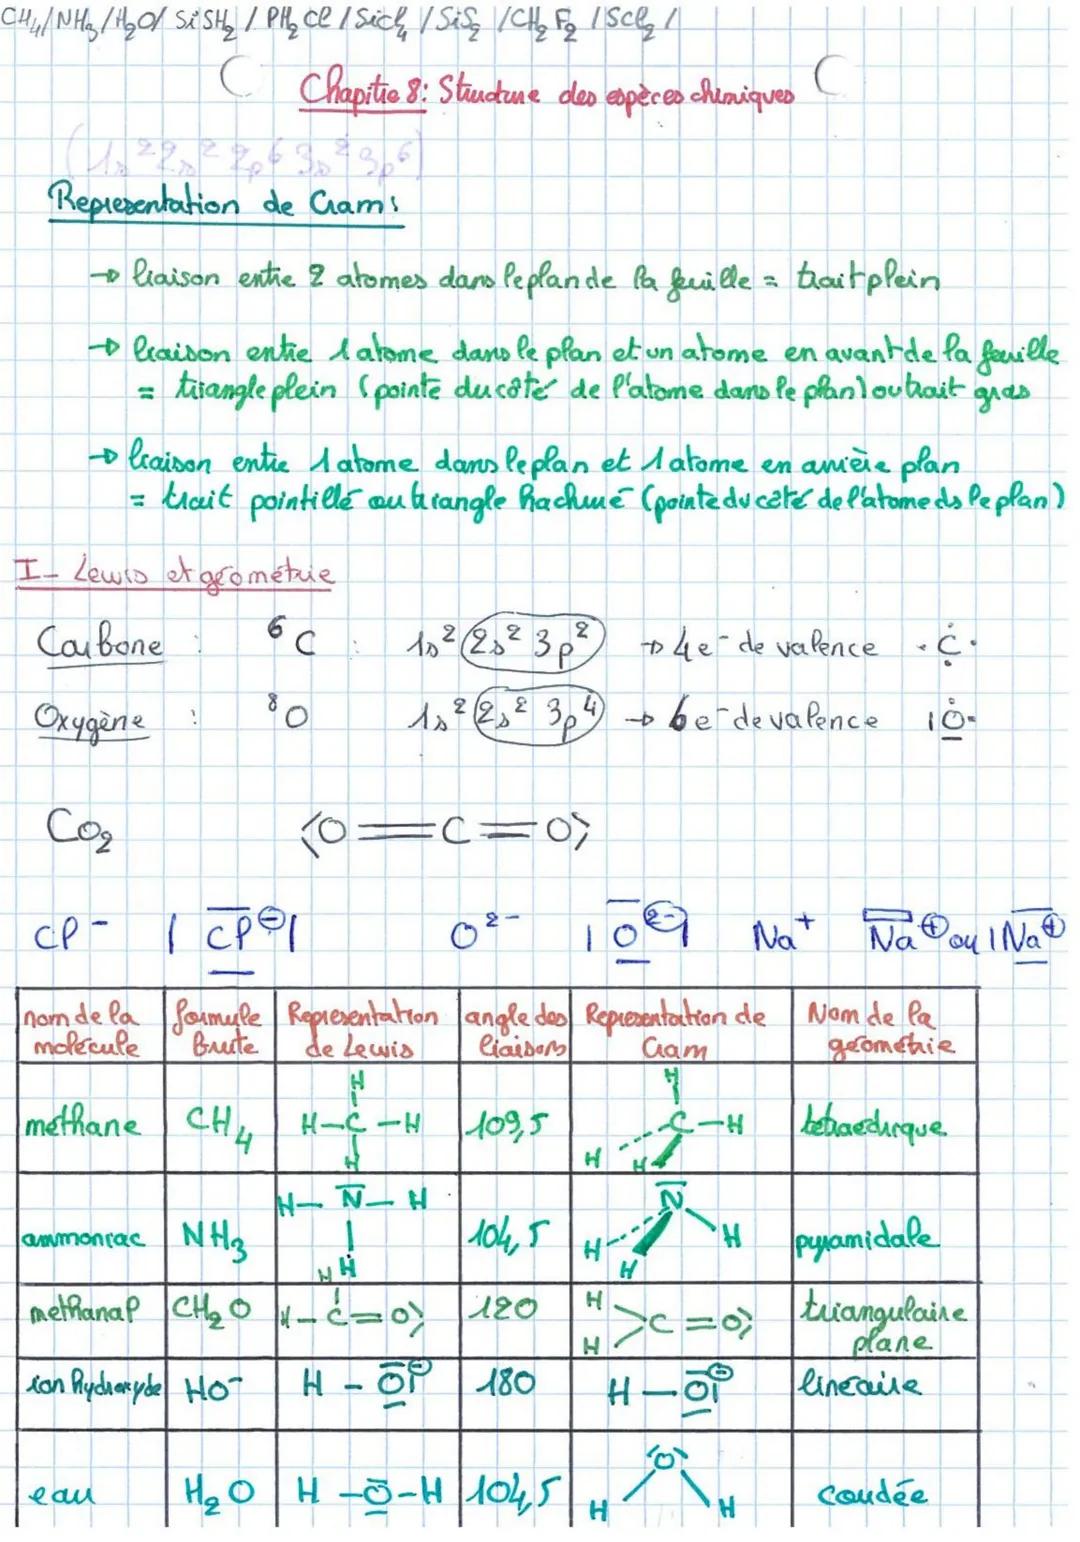 CH4/NH3/H2O/ SiSH2 / PH2Cl / SiCl4 / SiS2 / CH2F2 / SCl2 /
Chapitre 8: Structure des espèces chimiques
(1s² 2s² 2p⁶ 3s² 3p⁶)
Representation de Cram:
→ liaison entre 2 atomes dans le plan de la feuille = trait plein
→ liaison entre 1 atome dans le plan et un atome en avant de la feuille
= triangle plein (pointe du côté de l'atome dans le plan) ou trait gras
→ liaison entre 1 atome dans le plan et 1 atome en arrière plan
= trait pointillé ou triangle hachuré (pointe du côté de l'atome ds le plan)
I- Lewis et géométrie
Carbone : ⁶C : 1s² 2s² 3p² → 4e⁻ de valence ·C·
Oxygène : ⁸O 1s² 2s² 3p⁴ → 6e⁻ de valence |O·
CO2 O=C=O
Cl⁻ |Cl⊖| O²⁻ |O²⁻| Na⁺ Na⊕ ou |Na⊕
nom de la molécule | formule Brute | Representation de Lewis | angle des liaisons | Representation de Cram | Nom de la géométrie
méthane CH4 H H-C-H H 109,5 H C-H H H tétraédrique
ammoniac NH3 H-N-H H 104,5 N H H H pyramidale
méthanal CH2O H H-C=O 120 H H C=O triangulaire plane
ion hydroxyde HO⁻ H-O⊖ 180 H-O⊖ linéaire
eau H2O H-O-H 104,5 O H H coudée